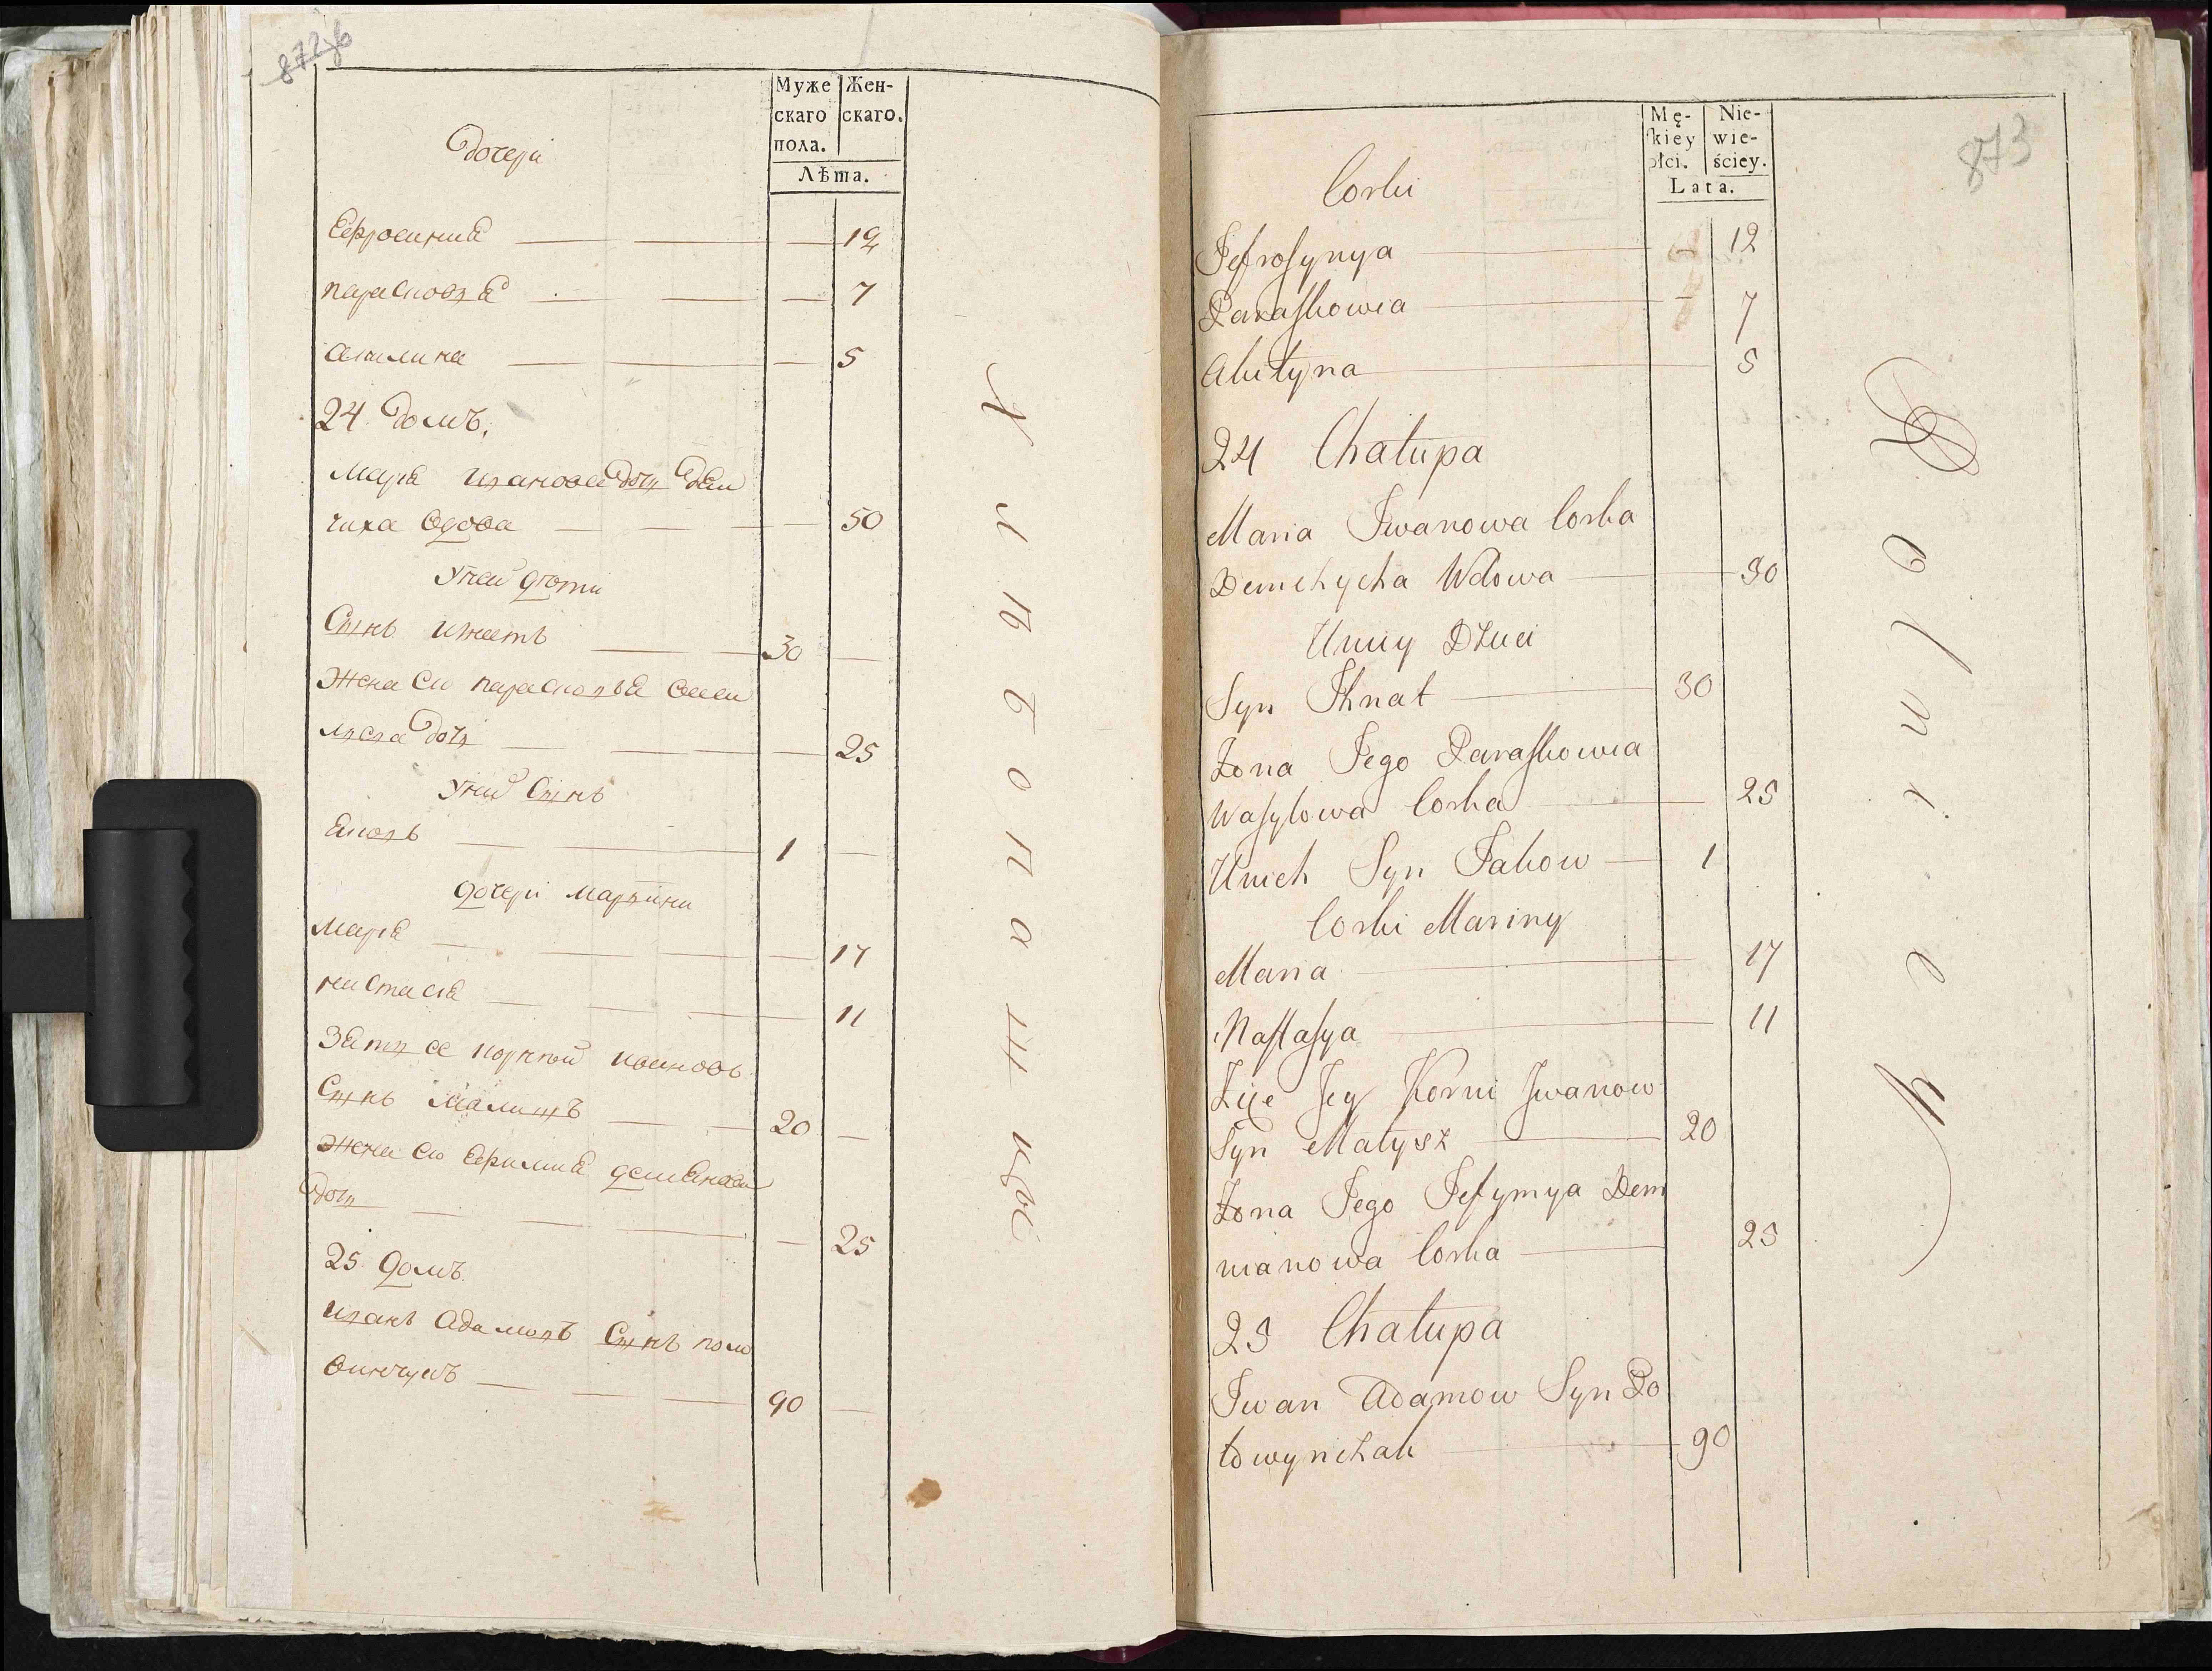 872об
Муже скаго пола. Жен- скаго.
Лѣта.
Дочери
Ефросиния 12
парасковя 7
акилина 5
24 Домъ.
Маря Иванова дочь дем
чиха вдова 50
У ней дѣти
Сынъ Игнатъ 30
Жена ею парасковя васи
лева дочь 25
У ней Сынъ
Яковъ 1
дочери Марыны
Маря 17
настася 11
Зять ее корней ивановъ
Сынъ Малышъ 20
Жена ею Ефимия демянова
дочь 25
25 домъ
Иванъ Адамовъ Сынъ поло
винчукъ 90
Хлѣбопашцы
873
Mę- kiey płci. Nie- wie- ściey.
Lata.
Corki
Jefrosynya 12
Paraskowia 7
Akulyna 5
24 Chałupa
Maria Iwanowa Corka
Demchycha Wdowa 50
U niey Dzieci
Syn Ihnat 30
Żona Jego Paraskowia
Wasylowa Corka 25
U nich Syn Jakow 1
Corki Mariny
Maria 17
Nastasya 11
Zięć Jey Korni Iwanow
Syn Małysz 20
Żona Jego Jefymya Dem
nianowa Corka 25
25 Chałupa
Iwan Adamow Syn Po
łowynczak 90
Rolnicy